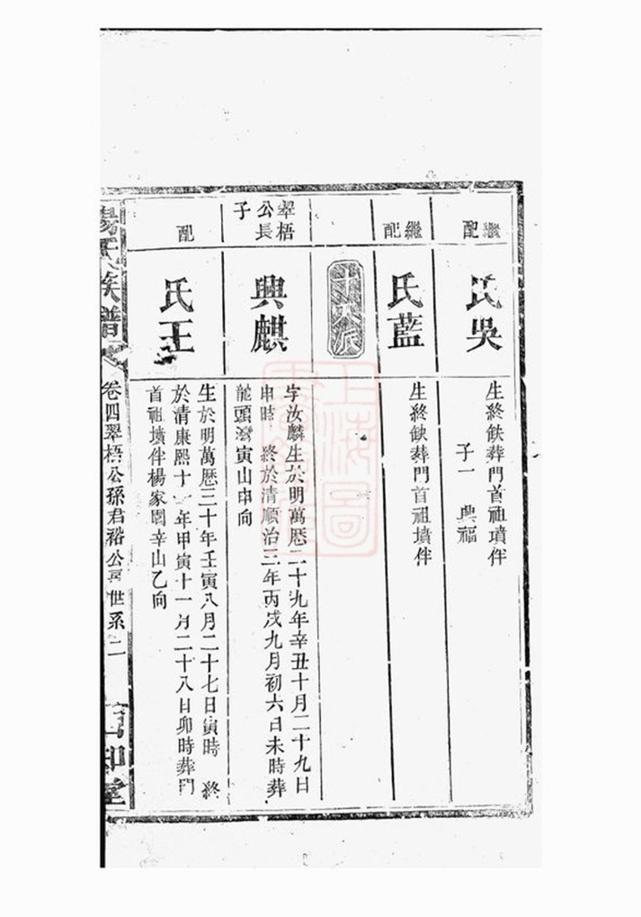 繼配
氏吳
生終缺葬門首祖墳伴
子一 興福
繼配
氏藍
生終缺葬門首祖墳伴
十六派
翠梧公長子
興麒
字汝麟生於明萬歷二十九年辛丑十月二十九日
申時 終於清順治三年丙戌九月初六日未時葬
龍頭灣寅山申向
配
氏王
生於明萬歷三十年壬寅八月二十七日寅時 終
於清康熙十 年甲寅十一月二十八日卯時葬門
首祖墳伴楊家園辛山乙向
楊氏族譜
卷四翠梧公孫君裕公房世系 二
上海圖